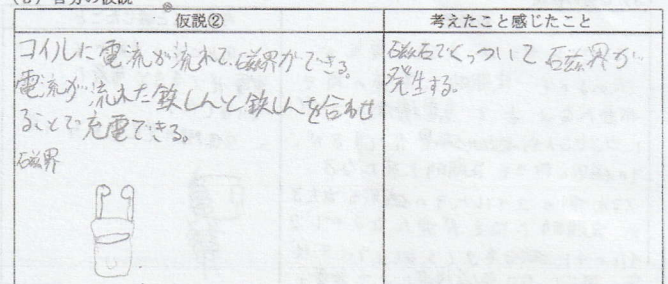 自分の仮説
仮説②
考えたこと感じたこと
コイルに電流が流れて、磁界ができる。
電流が流れた鉄しんと鉄しんを合わせ
ることで充電できる。
磁界
磁石でくっついて磁界が
発生する。